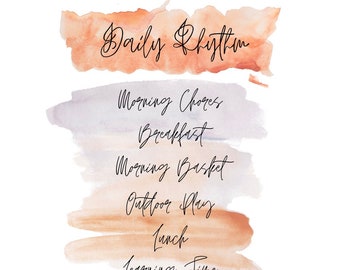 Daily Rhythm
Morning Chores
Breakfast
Morning Basket
Outdoor Play
Lunch
Learning Time